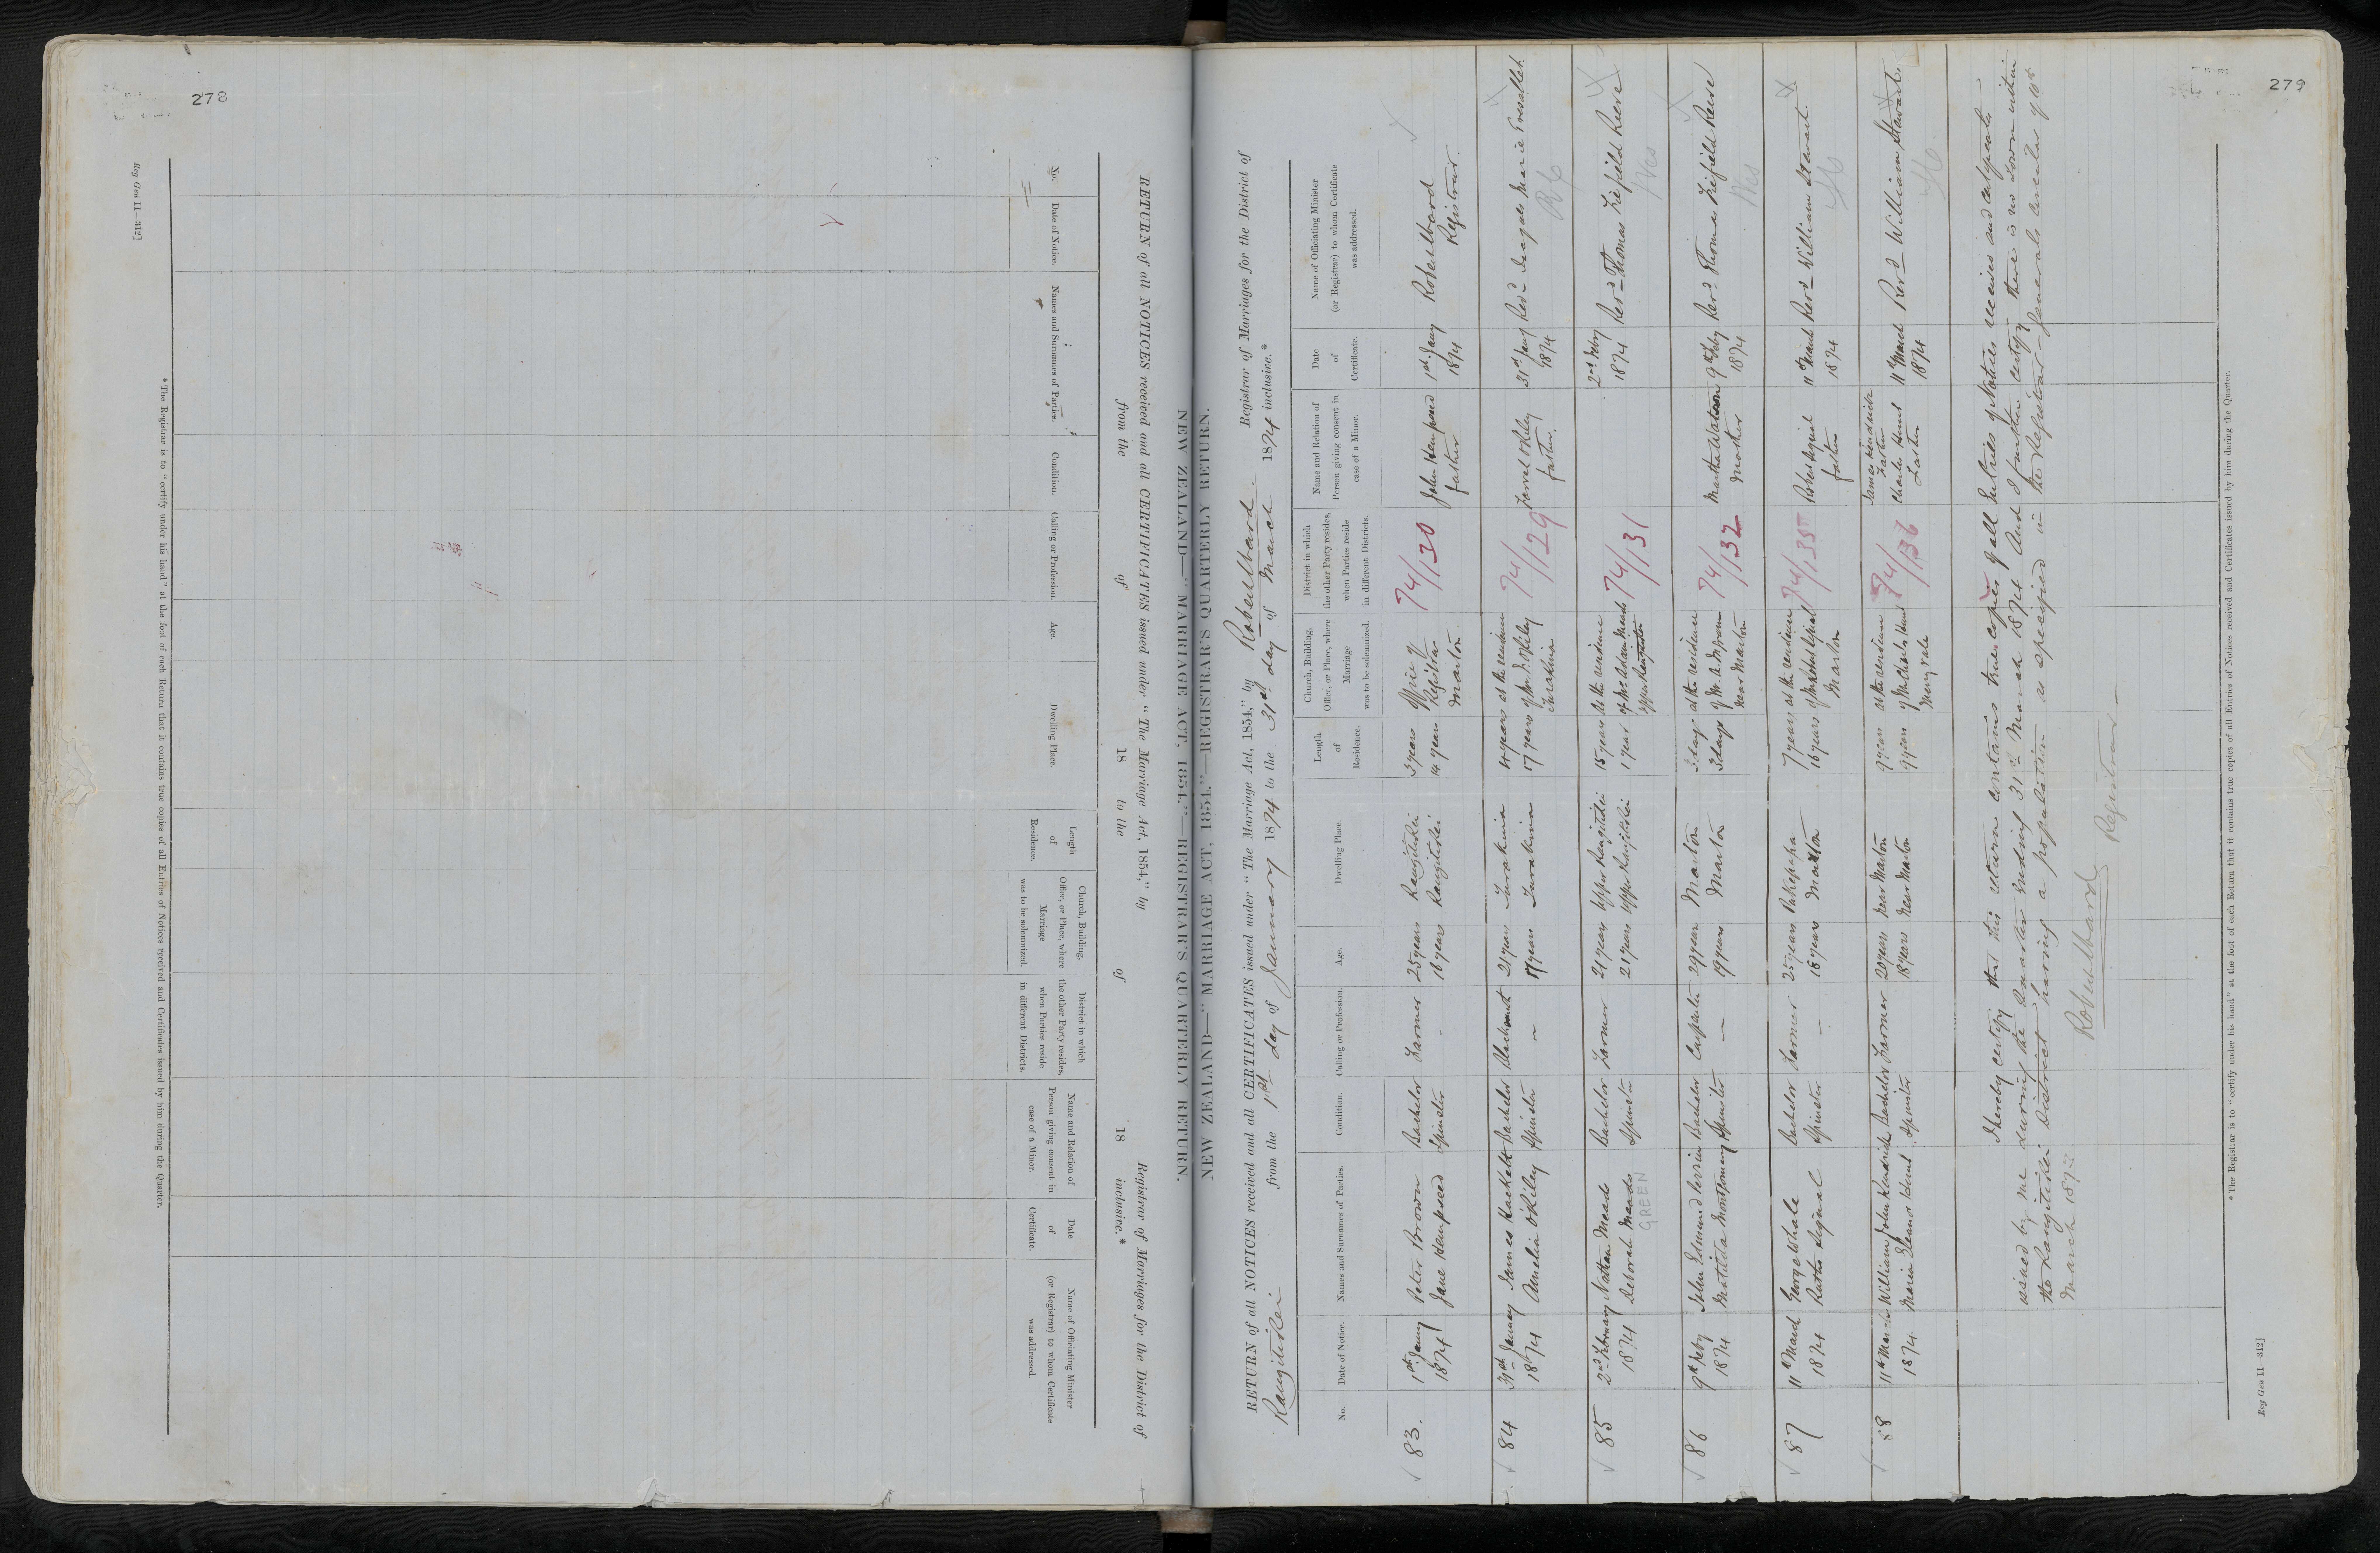 278
[Reg Gen 11—312]
NEW ZEALAND—"MARRIAGE ACT, 1854."—REGISTRAR'S QUARTERLY RETURN.
RETURN of all NOTICES received and all CERTIFICATES issued under "The Marriage Act, 1854," by Registrar of Marriages for the District of
from the of 18 to the of 18 inclusive.*
No. Date of Notice. Names and Surnames of Parties. Condition. Calling or Profession. Age. Dwelling Place. Length of Residence. Church, Building, Office, or Place, where Marriage was to be solemnized. District in which the other Party resides, when Parties reside in different Districts. Name and Relation of Person giving consent in case of a Minor. Date of Certificate. Name of Officiating Minister (or Registrar) to whom Certificate was addressed.
* The Registrar is to "certify under his hand" at the foot of each Return that it contains true copies of all Entries of Notices received and Certificates issued by him during the Quarter.
279
NEW ZEALAND—"MARRIAGE ACT, 1854."—REGISTRAR'S QUARTERLY RETURN.
RETURN of all NOTICES received and all CERTIFICATES issued under "The Marriage Act, 1854," by Robert Ward Registrar of Marriages for the District of
Rangitikei from the 1st day of January 1874 to the 31st day of March 1874 inclusive.*
No. Date of Notice. Names and Surnames of Parties. Condition. Calling or Profession. Age. Dwelling Place. Length of Residence. Church, Building, Office, or Place, where Marriage was to be solemnized. District in which the other Party resides, when Parties reside in different Districts. Name and Relation of Person giving consent in case of a Minor. Date of Certificate. Name of Officiating Minister (or Registrar) to whom Certificate was addressed.
83. 1st Jany Peter Brown Bachelor Farmer 25 years Rangitikei 3 years Office of 74/130 John Hempseed 1st Jany Robert Ward
1874 Jane Hempseed Spinster - 16 years Rangitikei 14 years Registrar father 1874 Registrar.
Marton
84 31st January James Hackett Bachelor 21 years Turakina 4 years at the residence 74/129 31st Jany Revd
1874 Amelia O'Riley Spinster - 17 years Turakina 17 years of Mr O'Riley father. 1874
Turakina
85 2nd February Nathan Meads Bachelor Farmer 21 years Upper Rangitikei 15 years At the residence 74/131 2nd Feby Revd Thomas Fiefield Reeve
1874 Deborah Meads Spinster 21 years Upper Rangitikei 1 year of Mr 1874 Wes
GREEN Upper Rangitikei
86 9th Feby John Edmund Bachelor Carpenter 29 years Marton 3 days at the residence 74/132 Martha Watson 9th Feby Revd Thomas Fiefield Reeve
1874 Matilda Montgomery Spinster - 19 years Marton 3 days of Mr Mother 1874 Wes
Near Marton
87 11th March George Whale Bachelor Farmer 25 years Pukepapa 7 years at the residence 74/135 Robert Signal 11th March Revd William Stewart
1874 Ruth Signal Spinster - 16 years Marton 16 years of Mr Robert Signal father 1874
Marton
88 11th March William John Kendrick Bachelor Farmer 20 years Near Marton 9 years at the residence 74/136 James Kendrick Father 11th March Revd William Stewart
1874 Maria Spinster 18 years Near Marton 9 years of Mr Charles Charles Father 1874
I hereby certify that this return contains true copies of all Entries of Notices received and certificates
issued by me during the Quarter ending 31st March 1874 And I further certify there is no Town within
the Rangitikei District having a population as specified in the Registrar-Generals circular of 6th
March 187
Robert Ward
Registrar
* The Registrar is to "certify under his hand" at the foot of each Return that it contains true copies of all Entries of Notices received and Certificates issued by him during the Quarter.
Reg Gen 11—312]